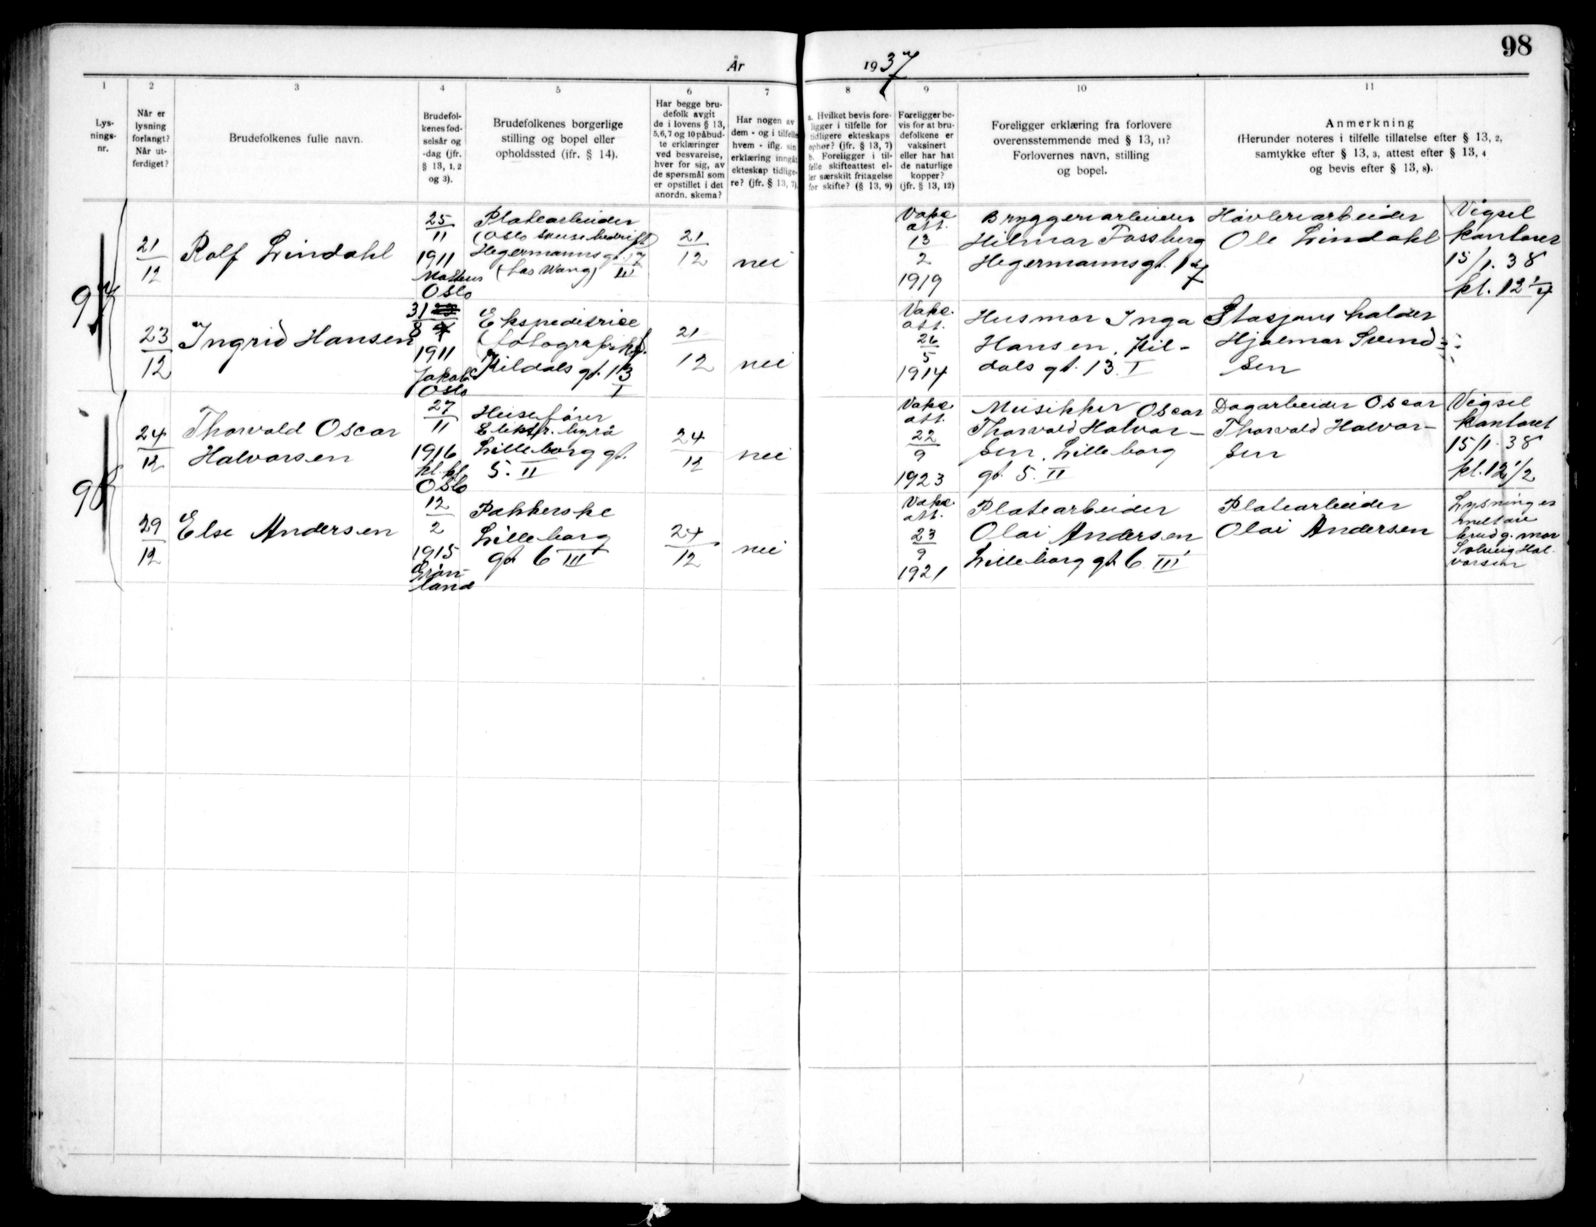 98
År 1937
1
2
3
4
5
6
7
8
9
10
11
Lys-
nings-
nr.
Når er
lysning
forlangt?
Når ut-
ferdiget?
Brudefolkenes fulle navn.
Brudefol-
kenes fød-
selsår og
-dag (jfr.
§ 13, 1, 2
og 3).
Brudefolkenes borgerlige
stilling og bopel eller
opholdssted (ifr. § 14).
Har begge bru-
defolk avgit
de i lovens § 13,
5,6,7 og 10 påbud-
te erklæringer
ved besvarelse,
hver for sig, av
de spørsmål som
er opstillet i det
anordn. skema?
Har nogen av
dem - og i tilfelle
hvem - iflg. sin
erklæring inngåt
ekteskap tidlige-
re? (jfr. § 13, 7).
a. Hvilket bevis fore-
ligger i tilfelle for
tidligere ekteskaps
ophør? (jfr. § 13, 7)
b. Foreligger i til-
felle skifteattest el-
ler særskilt fritagelse
for skifte? (§ 13, 9)
Foreligger be-
vis for at bru-
defolkene er
vaksinert
eller har hat
de naturlige
kopper?
(jfr. § 13, 12)
Foreligger erklæring fra forlovere
overensstemmende med § 13, 11?
Forlovernes navn, stilling
og bopel.
Anmerkning
(Herunder noteres i tilfelle tillatelse efter § 13, 2,
samtykke efter § 13, 3, attest efter § 13, 4
og bevis efter § 13, 8).
97
21
12
Rolf Lindahl
25
11
1911
Oslo
Platearbeider
Hegermannsgt. 17
(hos Wang) III
21
12
nei
Vaks.
att.
13
2
1919
Bryggeriarbeider
Hilmar Fossberg
Hegermannsgt. 17
Høvleriarbeider
Ole Lindahl
Vigsel
kontoret
15/1. 38
kl. 12 1/4
23
12
Ingrid Hansen
31
8
1911
Jakob
Oslo
Ekspeditrise
Kildals gt. 13
I
21
12
nei
Vaks.
att.
26
5
1914
Husmor Inga
Hansen, Kil-
dals gt. 13 I
Stasjonsholder
Hjalmar Svend-
sen
98
24
12
Thorvald Oscar
Halvorsen
27
11
1916
Oslo
Heisefører
Elektr. byrå
Lilleborg gt.
5. II
24
12
nei
Vaks.
att.
22
9
1923
Musikker Oscar
Thorvald Halvor-
sen, Lilleborg
gt. 5. II
Dagarbeider Oscar
Thorvald Halvor-
sen
Vigsel
kontoret
15/1. 38
kl. 12 1/2
29
12
Else Andersen
12
2
1915
Grøn-
land
Pakkerske
Lilleborg
gt 6 III
24
12
nei
Vaks.
att.
23
9
1921
Platearbeider
Olai Andersen
Lilleborg gt. 6 III
Platearbeider
Olai Andersen
Lysning er
brudg. mor
Solveig Hal-
vorsen